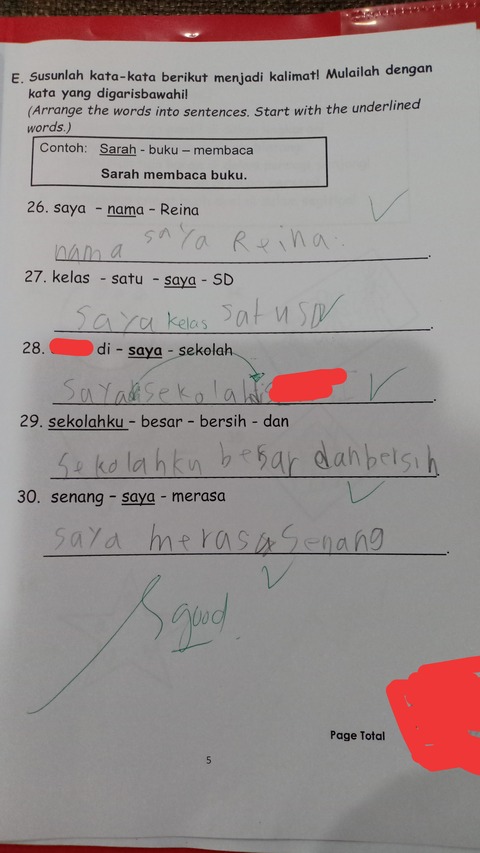 E. Susunlah kata-kata berikut menjadi kalimat! Mulailah dengan
kata yang digarisbawahi!
(Arrange the words into sentences. Start with the underlined
words.)
Contoh: Sarah - buku – membaca
Sarah membaca buku.
26. saya - nama - Reina
nama saya Reina.
27. kelas - satu - saya - SD
saya kelas satu SD
28. di - saya - sekolah
saya sekolah di
29. sekolahku - besar - bersih - dan
sekolahku besar dan bersih
30. senang - saya - merasa
saya merasa senang
good.
Page Total
5